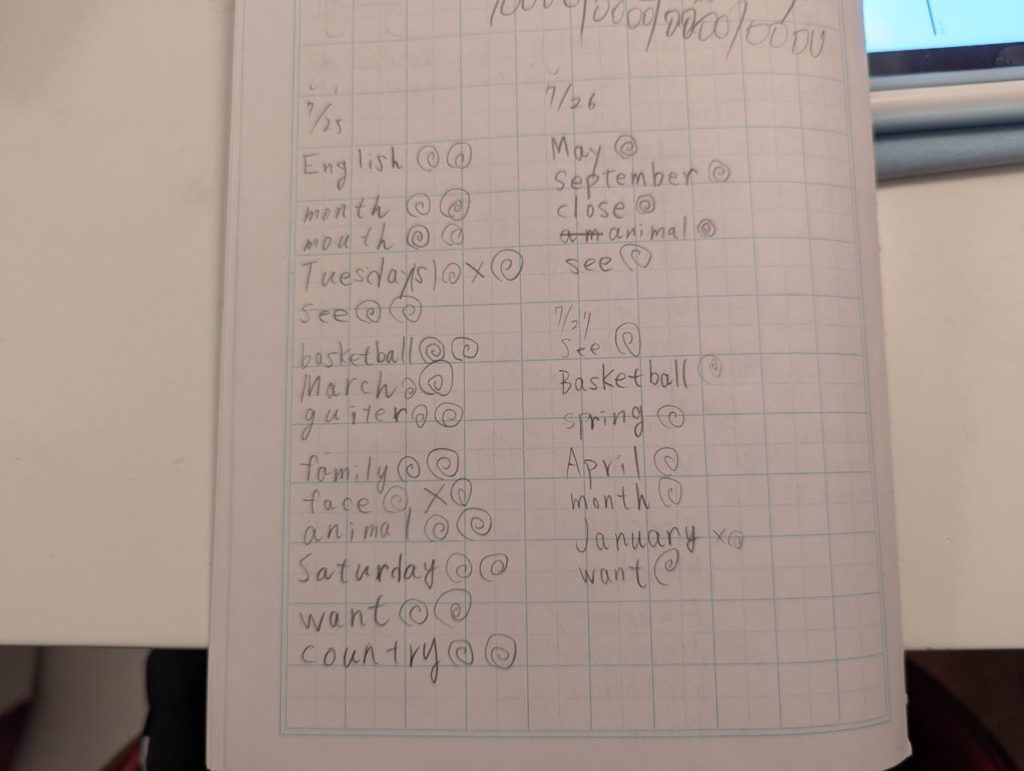 10000/0000/0000/0000
7/25
English
month
mouth
Tuesday(s)
see
basketball
March
guiter
family
face
animal
Saturday
want
country
7/26
May
September
close
am animal
see
7/27
see
Basketball
spring
April
month
January
want